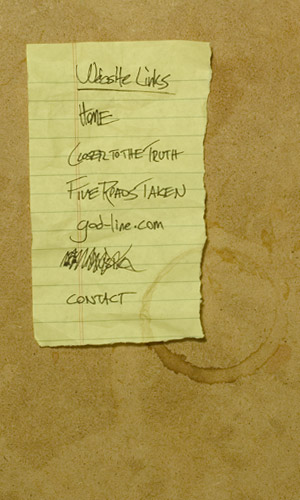 Website Links
HOME
CLOSER TO THE TRUTH
FIVE ROADS TAKEN
god-line.com
CONTACT